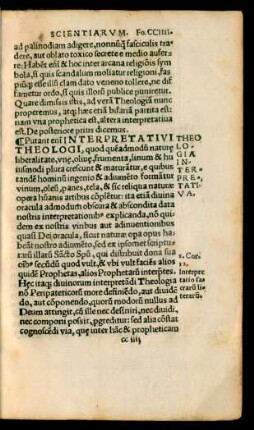 SCIENTIARVM. Fo.CCIIII.
ad palinodiam adigere, nonnũq̃ fasciculis tra
dere, aut oblato toxico secrete e medio aufer
re: Habẽt eñi & hoc inter arcana religiõis sym
bola, si quis scandalum moliatur religioni, fas
piũq̃ esse illum clam dato veneno tollere, ne dif
fametur ordo, si quis illorũ publice puniretur.
Quare dimissis istis, ad verã Theologiã nunc
properemus, atq; hæc etiã bifaria partita est:
nam vna prophetica est, altera interpretatiua
est. De posteriore prius dicemus.
¶ Putant eñi INTERPRETATIVI
THEOLOGI, quod quẽadmodũ naturę
liberalitate, vuę, oliuę, frumenta, linum & hu
iusmodi plura crescunt & maturãtur, e quibus
tandẽ hominũ ingenio & adiumento formãtur
vinum, oleũ, panes, tela, & sic reliqua naturæ
opera hũanis artibus cõplẽtur: ita etiã diuina
oracula admodum obscura & abscondita data
nostris interpretationib⁹ explicanda, nõ qui
dem ex nostris viribus aut adinuentionibus
quasi Dei oracula, sicut naturæ opa opus ha
beãt nostro adiumẽto, sed ex ipsomet scriptu
rarũ illarũ Sãcto Spũ, qui distribuit dona sua
oĩb⁹ secundũ quod vult, & vbi vult faciẽs alios
quidẽ Prophetas, alios Prophetarũ interp̃tes.
Hęc itaq; diuinorum interpretãdi Theologia
nõ Peripateticorũ more definiẽdo, aut diuidẽ
do, aut cõponendo, quorũ modorũ nullus ad
Deum attingit, cũ ille nec desiniri, nec diuidi,
nec componi possit, pgreditur: sed alia cõstat
cognoscẽdi via, quę inter hãc & propheticam
cc iiij
THEO
LO-
GIA
IN-
TER-
PRE-
TATI-
VA.
1. Cori.
12.
Interpre
tatio sa
crarũ li
terarũ.